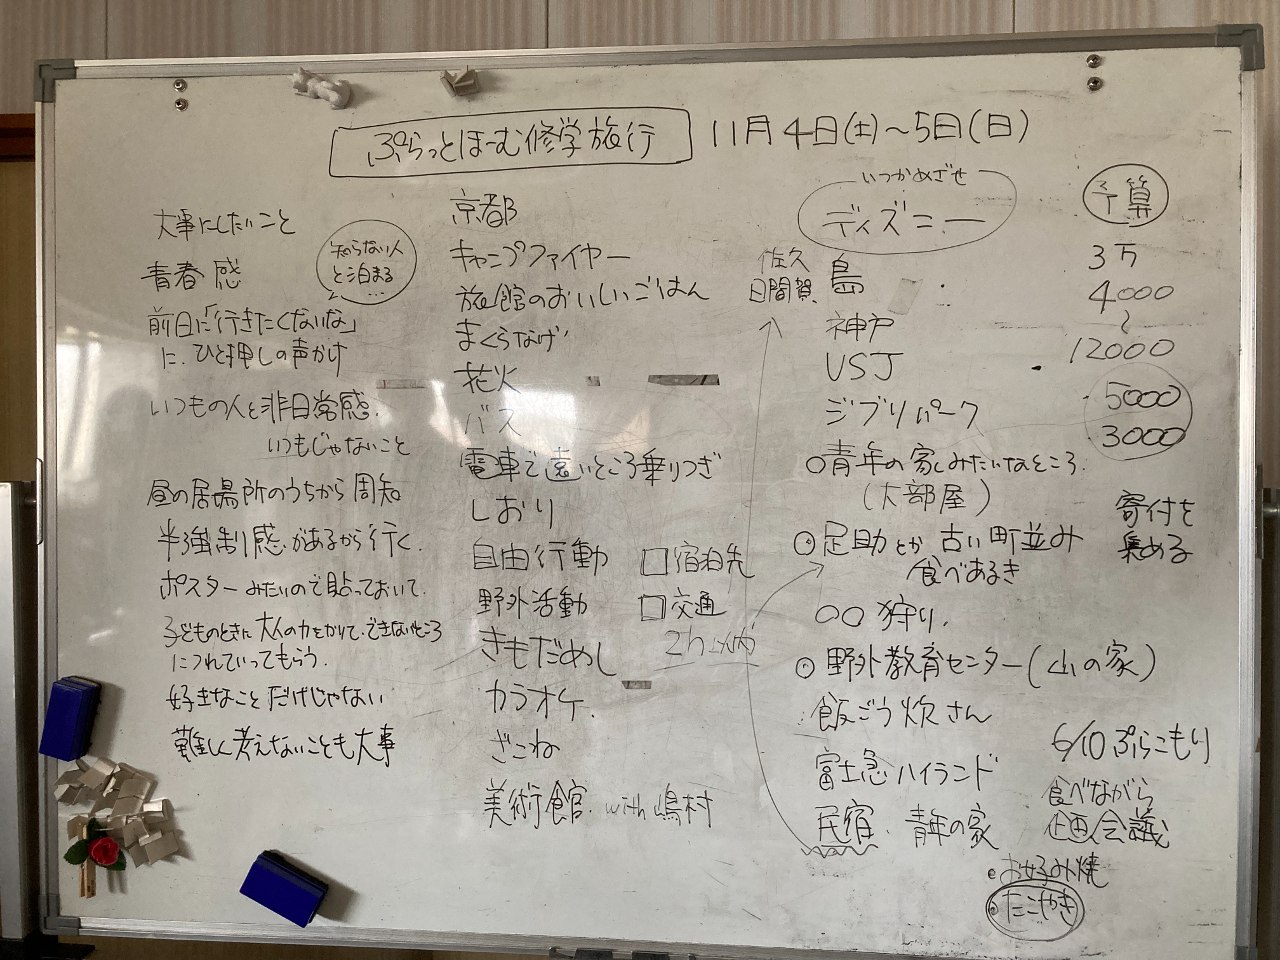 ぷらっとほーむ修学旅行
11月4日(土)~5日(日)
大事にしたいこと
青春感
知らない人
と泊まる
...
前日に「行きたくないな」
に、ひと押しの声かけ
いつもの人と非日常感.
いつもじゃないこと
昼の居場所のうちから周知
半強制感があるから行く.
ポスターみたいので貼っておいて.
子どものときに大人の力をかりて、できないところ
につれていってもらう.
好きなことだけじゃない
難しく考えないことも大事
京都
キャンプファイヤー
旅館のおいしいごはん
まくらなげ
花火
バス
電車で遠いところ乗りつぎ
しおり
自由行動
野外活動
きもだめし
カラオケ.
ざこね
美術館. with 嶋村
□宿泊先
□交通
2h以内
いつかめざせ
ディズニー
佐久
日間賀
島
神戸
USJ
ジブリパーク
○青年の家みたいなところ.
(大部屋)
◎足助とか 古い町並み
食べあるき
○○狩り.
◎野外教育センター(山の家)
飯ごう炊さん
富士急ハイランド
民宿. 青年の家
予算
3万
4000
~
12000
5000
3000
寄付を
集める
6/10 ぷらこもり
食べながら
企画会議
・お好み焼
・たこやき